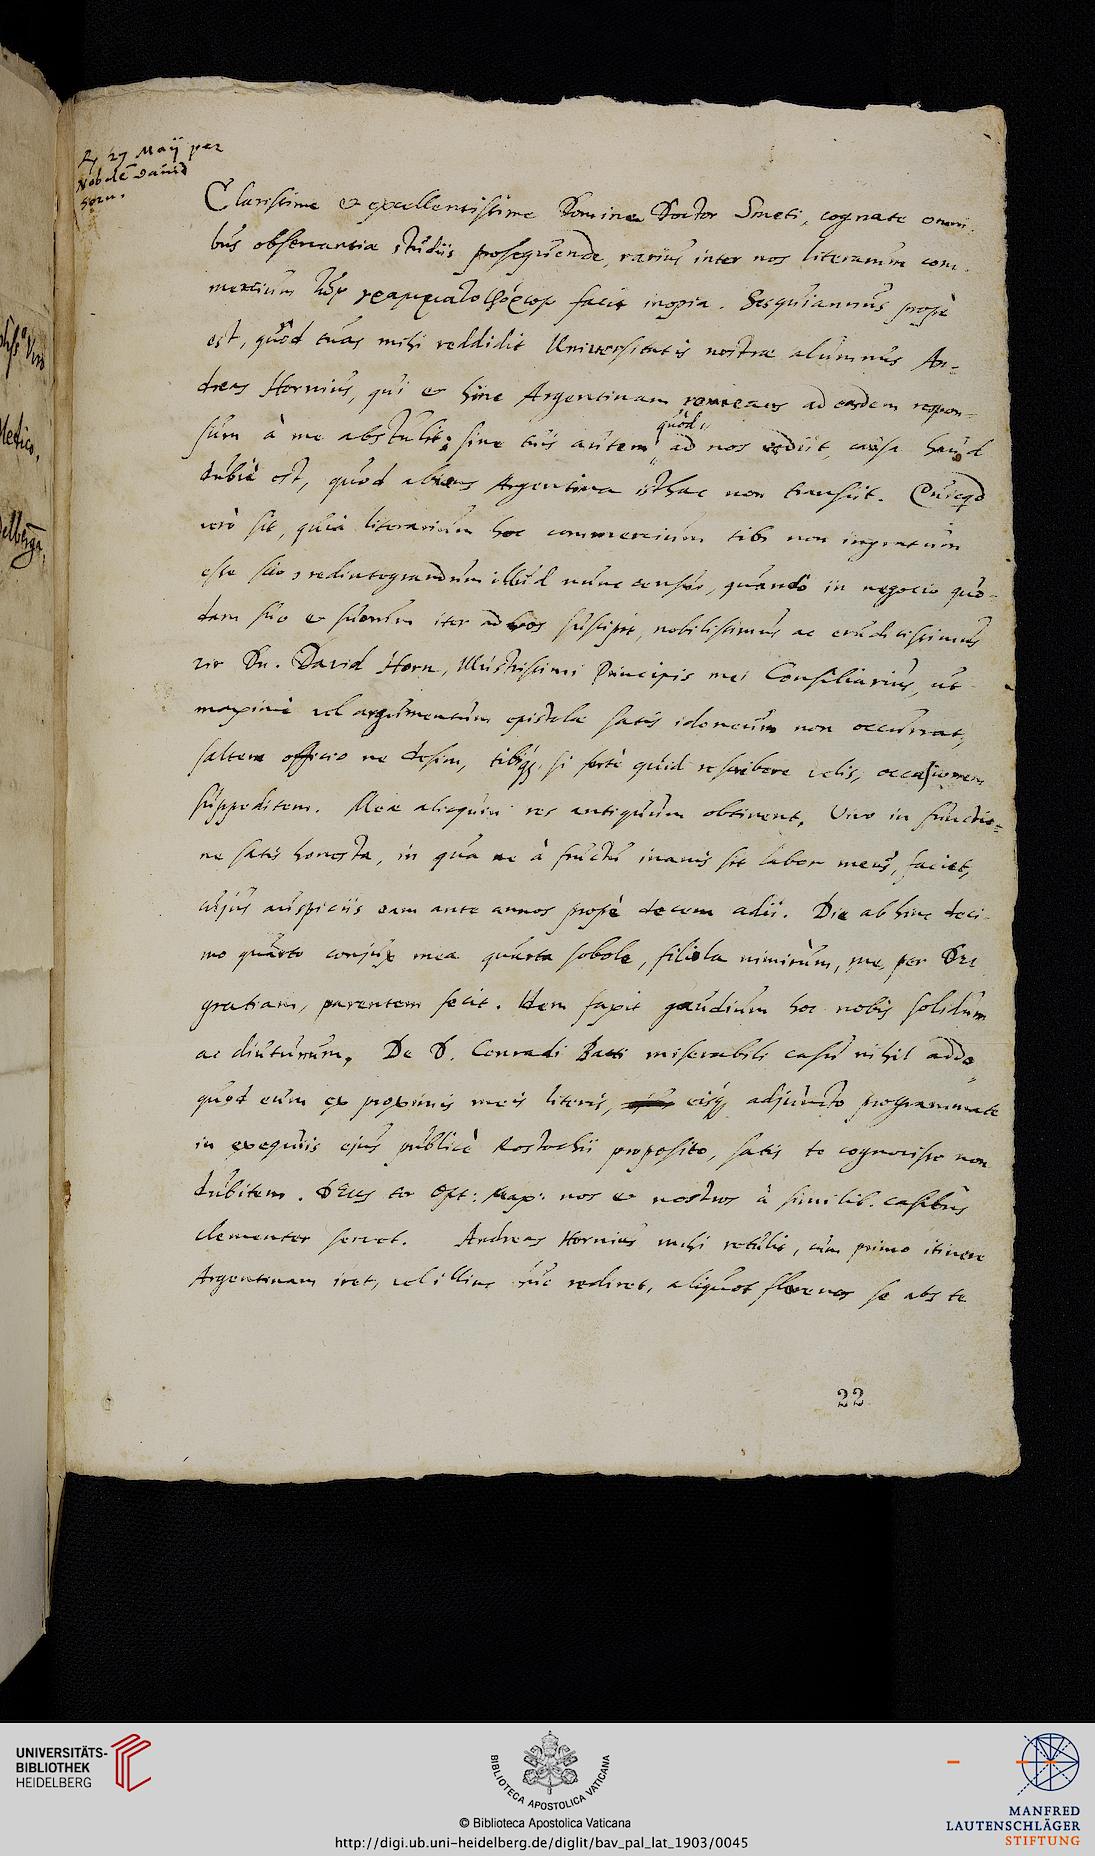 R. 27 Maij per
Nobilē David
Horn.
Clarissime et excellentissime Domine Doctor Smeti, cognate omni-
bus observantiæ studiis prosequende, rarius inter nos literarum com-
mercium τῶν γραμματοφόρων facit inopia. Sesquiannus propè
est, quòd tuas mihi reddidit Universitatis nostræ alumnus An-
dreas Hornius, qui et hinc Argentinam ad easdem respon-
sum à me abstulit; sine tuis autem quòd ad nos rediit, causa haud
dubiè est, quòd abiens Argentina isthac non transiit. Quicqd
verò sit, quia literarium hoc commercium tibi non ingratum
esse scio, redintegrandum illud nunc censui, quando in negocio quo-
dam suo et suorum iter ad vos suscipit, nobilissimus ac eruditissimus
vir Dn. David Horn, Illustrissimi Principis mei Consiliarius, ut
maximè vel argumentum epistolæ satis idoneum non occurrat,
saltem officio ne desim, tibiq; si fortè quid rescribere velis, occasionem
suppeditem. Meæ alioquin res antiquum obtinent, Vivo in functio-
ne satis honesta, in qua ne à fructu inanis sit labor meus, faciet,
cujus auspiciis eam ante annos propè decem adii. Die ab hinc deci-
mo quarto conjux mea quarta sobole, filiola nimirùm, me, per Dei
gratiam, parentem fecit. Idem faxit gaudium hoc nobis solidum
ac diuturnum. De D. Conradi Batti miserabili casu nihil addo,
quod eum ex proximis meis literis, eisq; adjuncto programmate
in exequiis ejus publicè Rostochii proposito, satis te cognovisse non
dubitem. DEus ter Opt: Max: nos et nostros à similib. casibus
clementer servet. Andreas Hornius mihi retulit, cùm primo itinere
Argentinam iret, vel illinc huc rediret, aliquot florenos se abs te
22
UNIVERSITÄTS-
BIBLIOTHEK
HEIDELBERG
BIBLIOTECA APOSTOLICA VATICANA
© Biblioteca Apostolica Vaticana
http://digi.ub.uni-heidelberg.de/diglit/bav_pal_lat_1903/0045
MANFRED
LAUTENSCHLÄGER
STIFTUNG